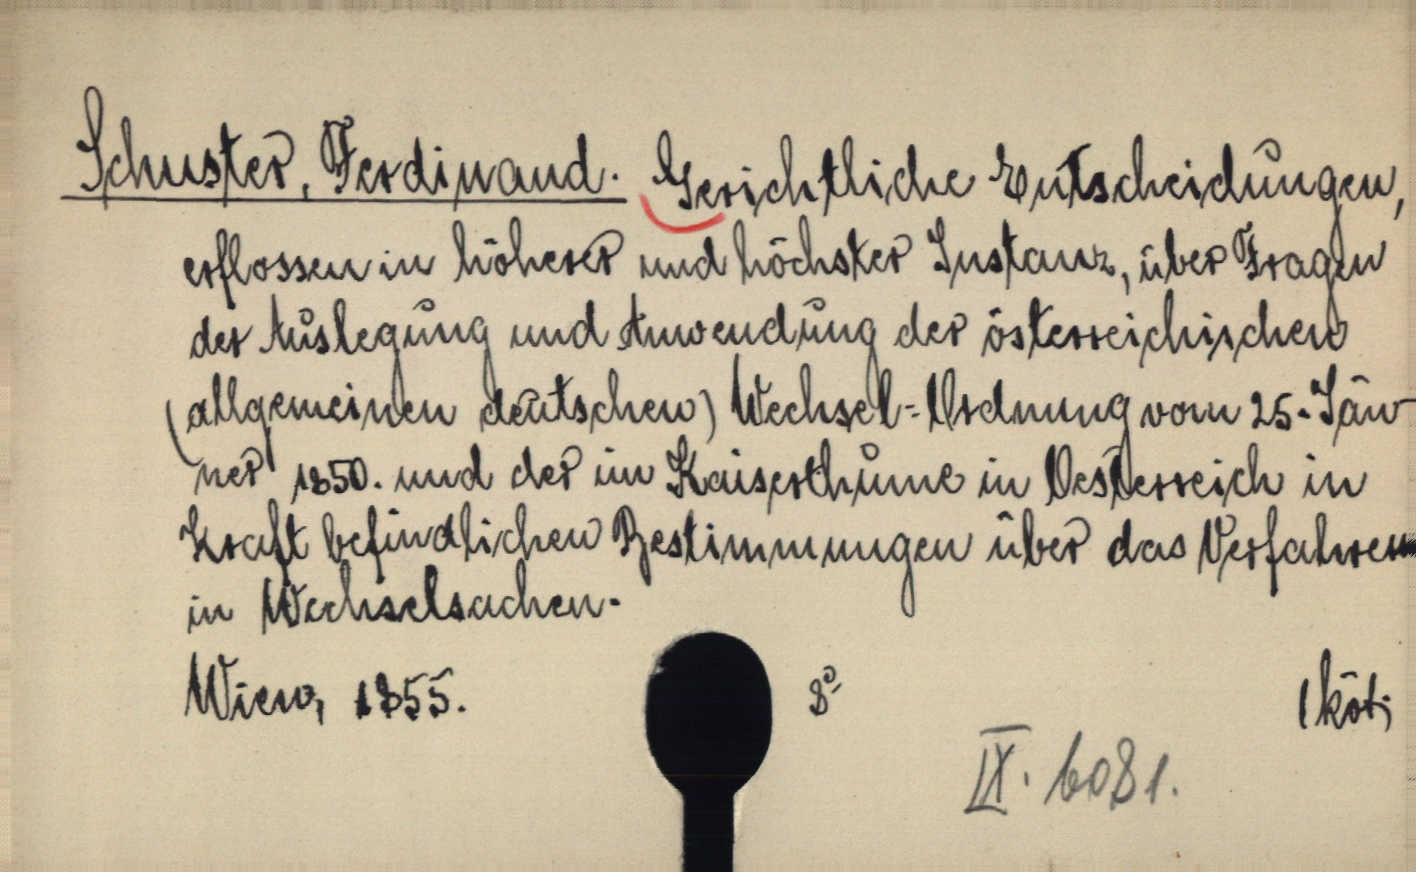 Schuster, Ferdinand. Gerichtliche Entscheidungen,
erflossen in höherer und höchster Instanz, über Fragen
der Auslegung und Anwendung der österreichischen
(allgemeinen deutschen) Wechsel-Ordnung vom 25. Jän-
ner 1850. und der im Kaiserthume in Oesterreich in
Kraft befindlichen Bestimmungen über das Verfahren
in Wechselsachen.
Wien, 1855. 8º 1 köt;
IX. 6081.